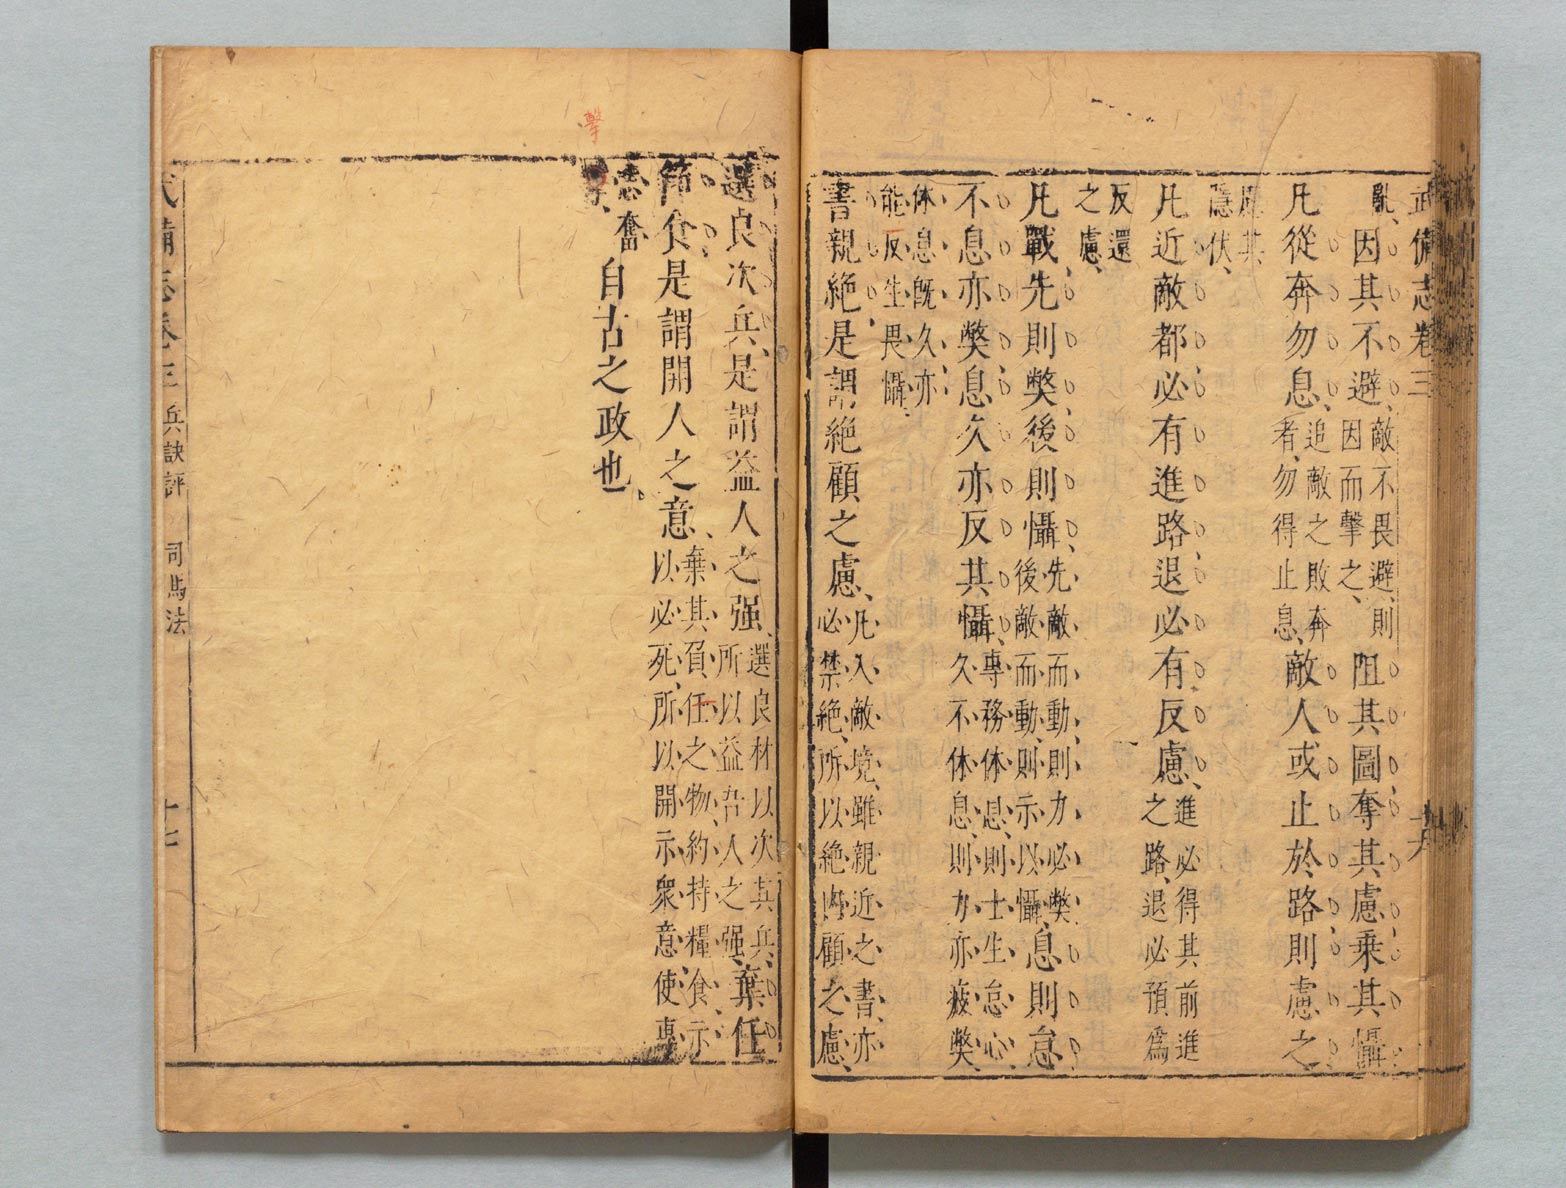 武備志卷三
亂、因其不避、敵不畏避、則因而擊之、阻其圖奪其慮乗其懾
凡從奔勿息、追敵之敗奔者、勿得止息、敵人或止於路則慮之
慮其隱伏、
凡近敵都必有進路退必有反慮、進必得其前進之路、退必預爲
反還之慮、
凡戰、先則弊後則懾、先敵而動、則力必弊後敵而動、則示以懾、息則怠
不息亦弊息久亦反其懾、專務休息、則士生怠心久不休息、則力亦疲弊、
休息旣久亦能反生畏懾、
書親絶是謂絶顧之慮、凡入敵境、雖親近之書、亦必禁絶、所以絶内顧之慮、
選良次兵、是謂益人之强、選良材以次其兵、所以益吾人之强、棄任
節食是謂開人之意、棄其負任之物、約持糧食、示以必死、所以開示衆意、使專
志奮
擊、自古之政也、
擊
武備志卷三 兵訣評 司馬法 十七